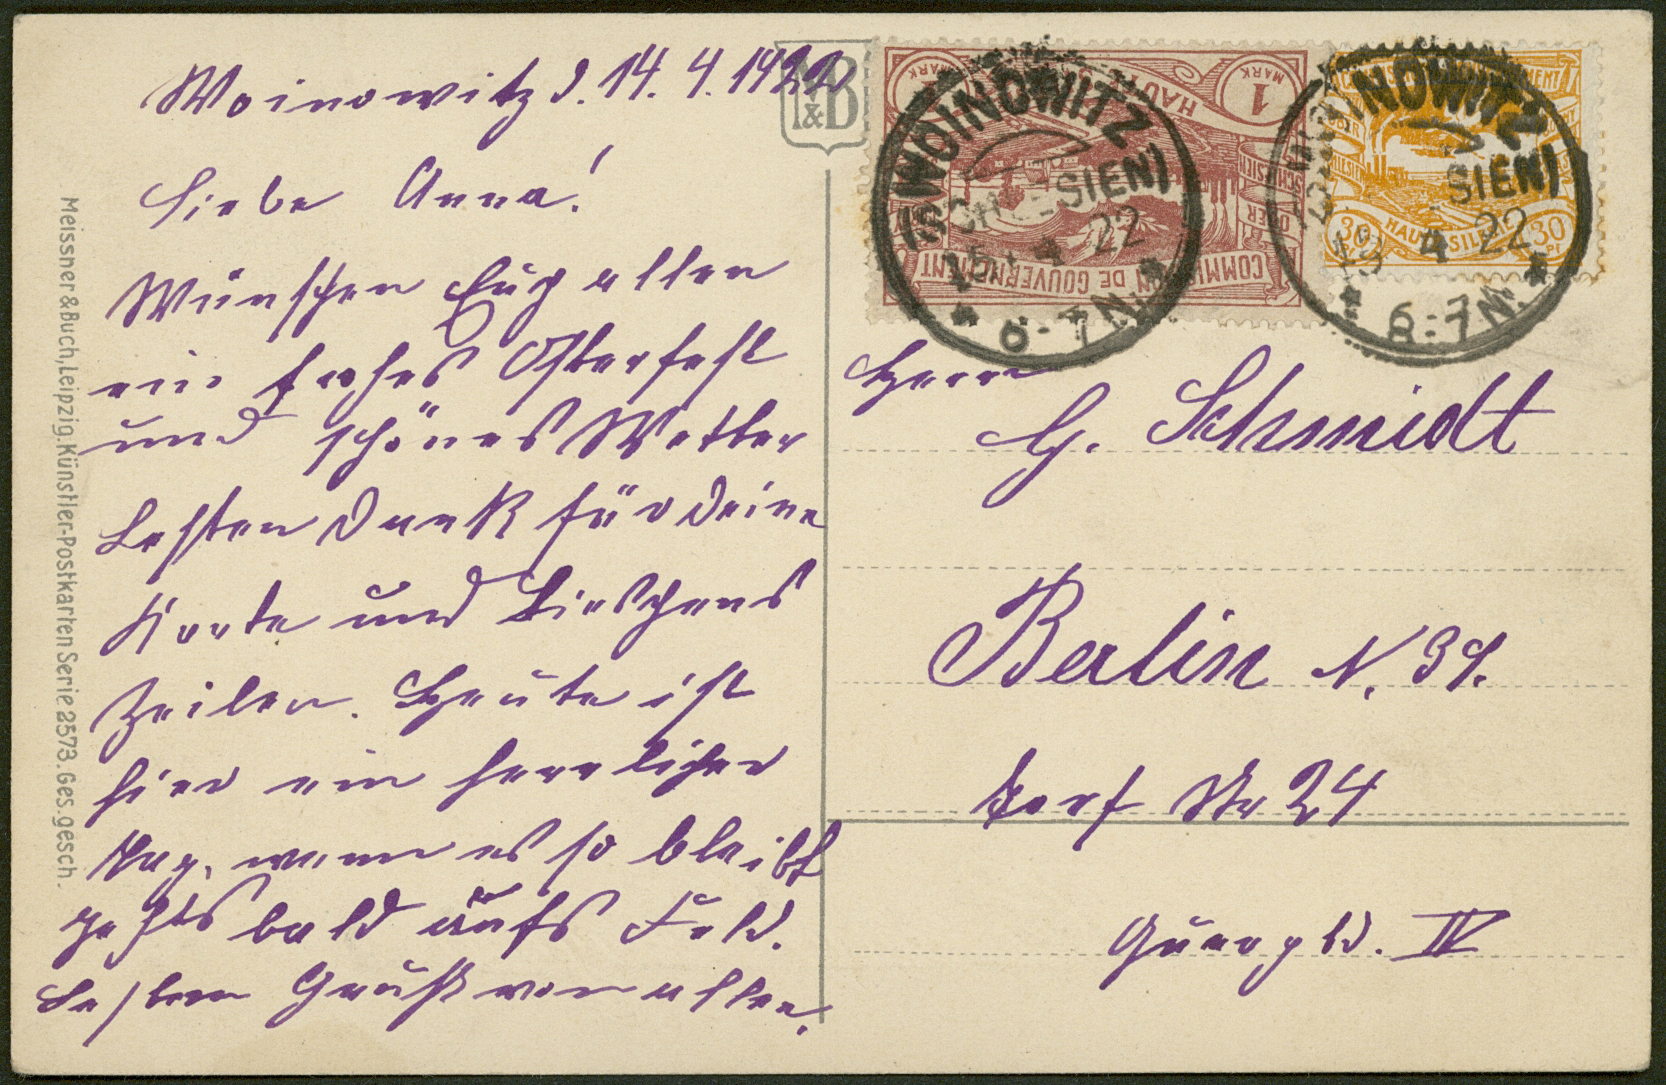 Woinowitz d. 14. 4. 1922
Liebe Anna!
Wünschen Euch allen
ein frohes Osterfest
und schönes Wetter
Besten Dank für Deine
Karte und Lieschens
Zeilen. Heute ist
hier ein herrlicher
Tag, wenn es so bleibt
geht's bald aufs Feld.
Besten Gruß von allen.
Meissner & Buch, Leipzig. Künstler-Postkarten Serie 2573. Ges. gesch.
M&B
1 MARK
HAUTE
COMMISSION DE GOUVERNEMENT
WOINOWITZ
(SCHLESIEN)
15 4 22
6-7 N.
30
HAUTE SILESIE
30 Pf
WOINOWITZ
SIEN)
4 22
6-7 N.
Herrn
G. Schmidt
Berlin N. 39.
Str 24
Quergbd. IV